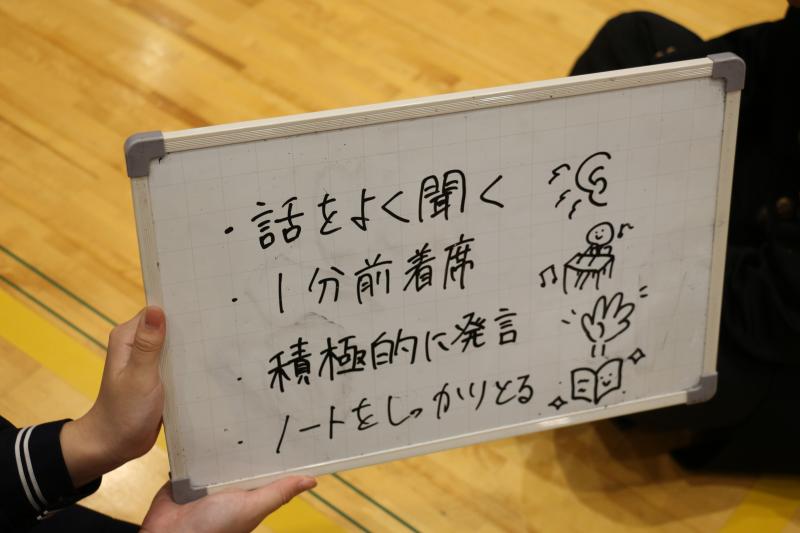 ・話をよく聞く
・1分前着席
・積極的に発言
・ノートをしっかりとる